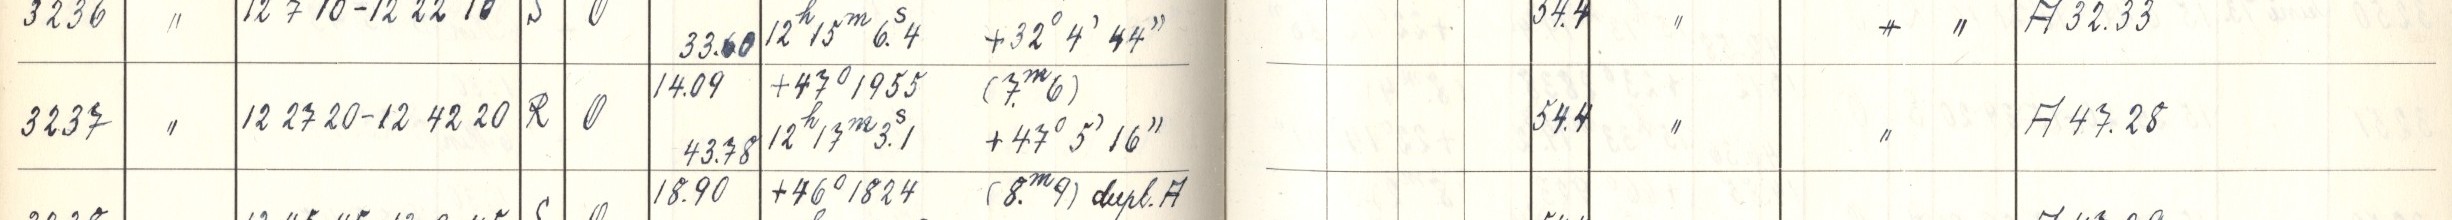 3236 " 12 7 10-12 22 10 S O 54.4 " + " A 32.33
33.60 12ʰ 15ᵐ 6.ˢ4 +32° 4' 44"
14.09 +47° 1955 (7.ᵐ6)
3237 " 12 27 20-12 42 20 R O 54.4 " " A 47.28
43.78 12ʰ 17ᵐ 3.ˢ1 +47° 5' 16"
18.90 +46° 1824 (8.ᵐ9) dupl. A